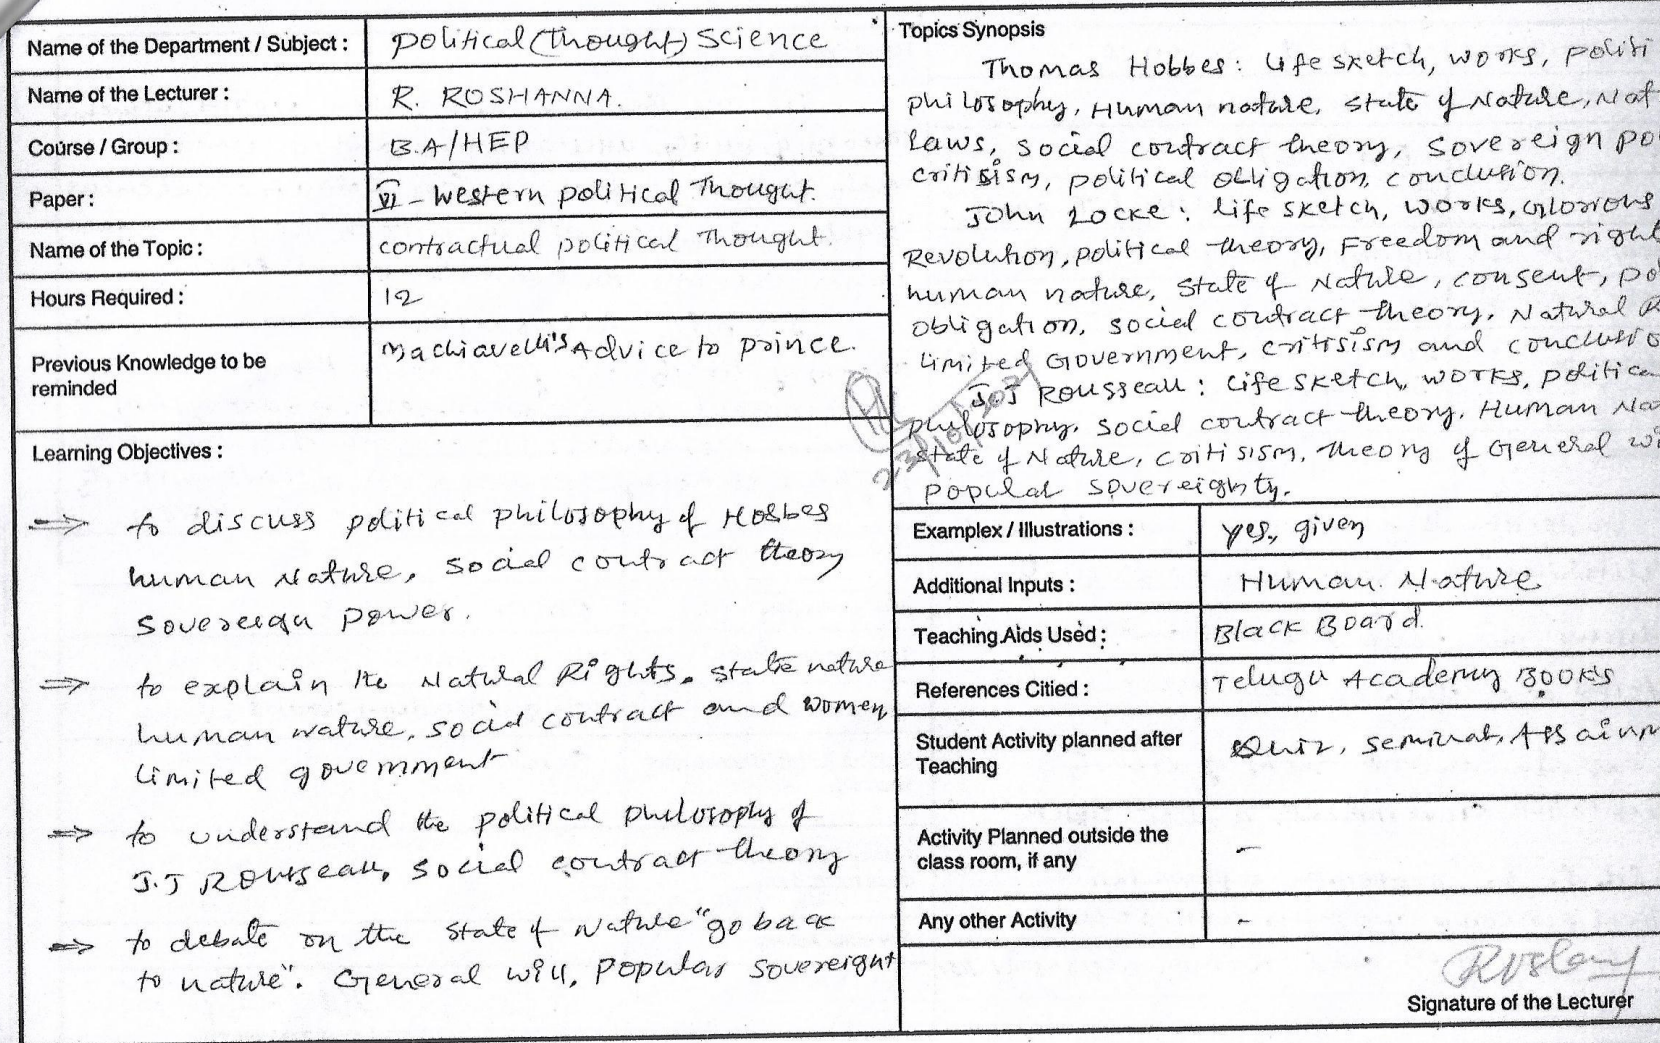 Name of the Department / Subject : Political (Thought) Science
Name of the Lecturer : R. ROSHANNA.
Course / Group : B.A/HEP
Paper : VI - Western political Thought.
Name of the Topic : contractual political Thought.
Hours Required : 12
Previous Knowledge to be reminded Machiavelli's Advice to prince.
Learning Objectives :
⇒ to discuss political philosophy of Hobbes
human Nature, social contract theory
sovereign power.
⇒ to explain the Natural Rights, state nature
human nature, social contract and women
limited government
⇒ to understand the political philosophy of
J.J Rousseau, social contract theory
⇒ to debate on the state of nature "go back
to nature". General will, Popular Sovereignt
Topics Synopsis
Thomas Hobbes: Life sketch, works, politi
philosophy, Human nature, state of Nature, Nat
Laws, social contract theory, sovereign po
critisism, political obligation, conclusion.
John Locke: life sketch, works, Glorious
Revolution, political theory, Freedom and right
human nature, state of Nature, consent, po
obligation, social contract theory, Natural R
Limited Government, critisism and conclusio
J.J Rousseau: Life sketch, works, politica
philosophy, social contract theory, Human Na
state of Nature, critisism, theory of General wi
Popular sovereignty.
Examplex / Illustrations : yes, given
Additional Inputs : Human Nature
Teaching Aids Used : Black Board
References Citied : Telugu Academy Books
Student Activity planned after
Teaching Quiz, seminar, Assainm
Activity Planned outside the
class room, if any -
Any other Activity -
Signature of the Lecturer